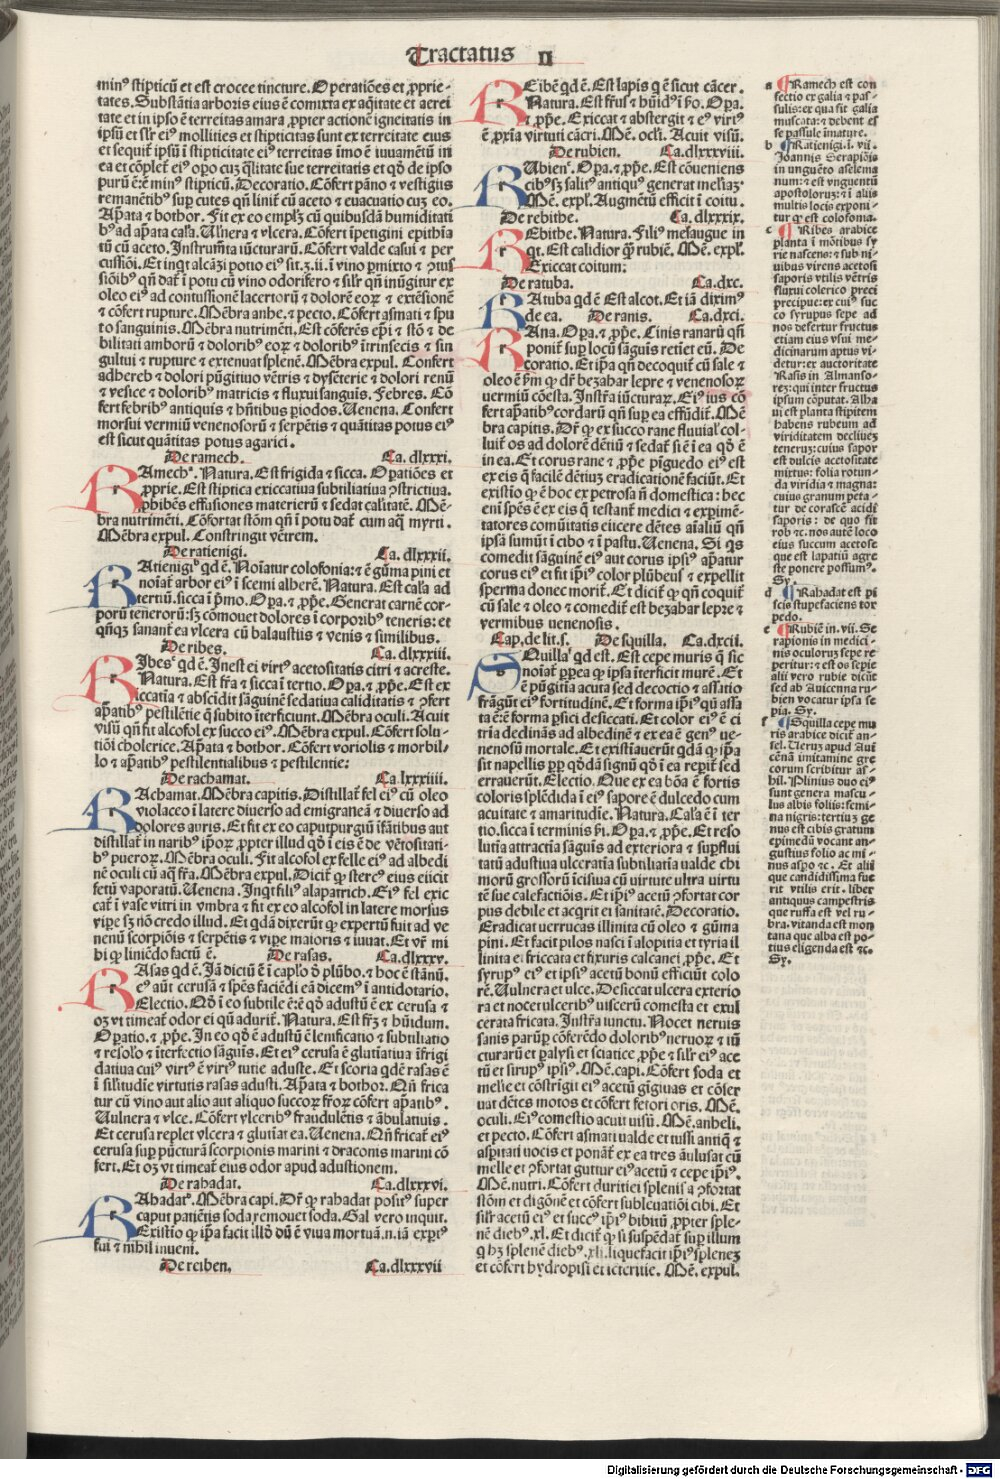 Tractatus II
minꝰ stipticū et est crocee tincture. Operatiões et ꝓprie-
tates. Substātia arboris eius ē comixta ex aq̄itate et aerei
tate et in ipso ē terreitas amara ꝓpter actionē igneitatis in
ipsū et silr̄ ei' mollities et stipticitas sunt ex terreitate eius
et sequit̄ ipsū ī stipticitate eiꝰ terreitas īmo ē iuuamētū in
remanētibꝰ suꝑ cutes qn̄ linit̄ cū aceto ⁊ euacuatio cuz eo.
Apata ⁊ bothor. Fit ex eo emplꝫ cū quibusdā humiditati
tū cū aceto. Instrumta iūcturarū. Cōfert valde casui ⁊ per
oleo ei' ad contussionē lacertorū ⁊ dolorē eorꝝ ⁊ extēsionē
⁊ cōfert rupture. Mēbra anhe. ⁊ pecto. Cōfert asmati ⁊ spu
to sanguinis. Mēbra nutrimēti. Est cōferēs epi̅ ⁊ stō ⁊ de
bilitati amborū ⁊ doloribꝰ eorꝝ ⁊ doloribꝰ ītrinsecis ⁊ sin
gultui ⁊ rupture ⁊ extenuat splenē. Mēbra expul. Confert
adhereb ⁊ dolori pūgitiuo vētris ⁊ dysēterie ⁊ dolori renū
⁊ vesice ⁊ doloribꝰ matricis ⁊ fluxui sanguis. Febres. Cō
fert febribꝰ antiquis ⁊ hn̄tibus ꝑiodos. Uenena. Confert
morsui vermiū venenosorū ⁊ serpētis ⁊ quātitas potus eiꝰ
est sicut quātitas potus agarici.
De ramech. Ca. dlxxxi.
RAmechª. Natura. Est frigida ⁊ sicca. Oꝑatiōes et
ꝓprie. Est stiptica exiccatiua subtiliatiua ꝯstrictiua.
ꝓhibēs effusiones materierū ⁊ sedat calitatē. Mē-
bra nutrimēti. Cōfortat stōm qn̄ ī potu dat̄ cum aq̄ myrti.
Mēbra expul. Constringit vētrem.
De ratienigi. Ca. dlxxxii.
RAtienigiᵇ qd ē. Noīatur colofonia: ⁊ ē gūma pini et
noīat̄ arbor ei' ī scemi alberē. Natura. Est cala ad
tertiū. sicca ī pͥmo. Oꝑa. ⁊ ꝓpe. Generat carnē cor-
porū tenerorū: sꝫ cōmouet dolores ī corporibꝰ teneris: et
qn̄qꝫ sanant̄ ea vlcera cū balaustiis ⁊ venis ⁊ similibus.
De ribes. Ca. dlxxxiii.
RIbesᶜ qd ē. Inest ei virtꝰ acetositatis citri ⁊ acreste.
Natura. Est fr̄a ⁊ sicca ī tertio. Oꝑa. ⁊ ꝓpe. Est ex
iccatīa ⁊ abscidit sāguinē sedatiua caliditatis ⁊ ꝯfert
apatibꝰ pestilētie q̄ subito īterficiunt. Mēbra oculi. Acuit
visū qn̄ fit alcofol ex succo eiꝰ. Mēbra expul. Cōfert solu-
tiōi cholerice. Apata ⁊ bothor. Cōfert voriolis ⁊ morbil-
lo ⁊ apatibꝰ pestilentialibus ⁊ pestilentie:
De rachamat. Ca. lxxxiiii.
RAchamat. Mēbra capitis. Distillat̄ fel eiꝰ cū oleo
violaceo ī latere diuerso ad emigraneā ⁊ diuerso ad
dolores auris. Et fit ex eo caputpurgiū īfātibus aut
distillat̄ in naribꝰ ipoꝝ ꝓpter illud qd̄ ī eis ē de vētositati-
bꝰ pueroꝝ. Mēbra oculi. Fit alcofol ex felle eiꝰ ad albedi
nē oculi cū aq̄ fr̄a. Mēbra expul. Dicit̄ ꝙ stercꝰ eius eiicit
fetū vaporatū. Uenena. Inqt filiꝰ alapatrich. Eiꝰ fel exic
cat̄ ī vase vitri in vmbra ⁊ fit ex eo alcofol in latere morsus
viꝑe sꝫ nō credo illud. Et qdā dixerūt ꝙ expertū fuit ad ve
nenū scorpiōis ⁊ serpētis ⁊ viꝑe maioris ⁊ iuuat. Et vr̄ mi
hi ꝙ liniēdo factū ē. De rasas. Ca. dlxxxv.
RAsas qd ē. Iā dictū ē ī capl'o ō plūbo. ⁊ hoc ē stānū.
Eꝰ aūt cerusa ⁊ spēs faciēdi eā dicemꝰ ī antidotario.
Electio. Qd̄ ī eo subtile ē: ē qd̄ adustū ē ex cerusa ⁊
oꝫ vt timeat̄ odor ei qn̄ adurit̄. Natura. Est fr̄ꝫ ⁊ hūidum.
Oꝑatio. ⁊ ꝓpe. In eo qd̄ ē adustū ē lenificatio ⁊ subtiliatio
⁊ resol'o ⁊ īterfectio sāguis. Et eiꝰ cerusa ē glutiatiua īfrigi
datiua cuiꝰ virtꝰ ē virtꝰ tutie aduste. Et scoria qdē rasas ē
ī sil'itudīe virtutis rasas adusti. Apata ⁊ bothoꝛ. Qn̄ frica
tur cū vino aut alio aut aliquo succoꝝ fr̄oꝝ cōfert apatibꝰ.
Uulnera ⁊ vlce. Cōfert vlceribꝰ fraudulētis ⁊ ābulatiuis.
Et cerusa replet vlcera ⁊ glutiat ea. Uenena. Qn̄ fricat̄ eiꝰ
cerusa suꝑ pūcturā scorpionis marini ⁊ draconis marini cō
fert. Et oꝫ vt timeat̄ eius odor apud adustionem.
De rahadat. Ca. dlxxxvi.
RAhadatᵈ. Mēbra capi. Dr̄ ꝙ rahadat positꝰ super
caput patiētis soda remouet soda. Gal vero inquit.
Existīo ꝙ ip̄a facit illd̄ dū ē viua mortuā. n. iā exꝑtꝰ
fui ⁊ nihil inueni.
De reiben. Ca. dlxxxvii
REibēᵉ qd ē. Est lapis q ē sicut cācer.
Natura. Est frūs ⁊ hūidꝰ ī pͦ. Oꝑa.
⁊ ꝓpe. Exiccat ⁊ abstergit ⁊ eꝰ virtꝰ
ē ꝓxīa virtuti cācri. Mē. ocl'i. Acuit visū.
De rubien. Ca. dlxxxviii.
RUbienᵉ. Oꝑa. ⁊ ꝓpe. Est cōueniens
cibꝰ sꝫ salitꝰ antiqꝰ generat mel'iaꝫ.
Mē. expl'. Augmētū efficit ī coitu.
De rebithe. Ca. dlxxxix.
REbithe. Natura. Filiꝰ mesaugue in
qt. Est calidior q̄ꝫ rubiē. Mē. expl'.
Exiccat coitum:
De ratuba. Ca. dxc.
RAtuba qd ē Est alcot. Et iā diximꝰ
de ea. De ranis. Ca. dxci.
RAna. Oꝑa. ⁊ ꝓpe. Cinis ranarū qn̄
ponit̄ suꝑ locū sāguis retiet eū. De
coratio. Et ip̄a qn̄ decoquit̄ cū sale ⁊
uermiū cōesta. Instr̄a iūcturaꝝ. Eiꝰ ius cō
fert apatibꝰ cordarū qn̄ suꝑ ea effūdit̄. Mē
bra capitis. Dr̄ ꝙ ex succo rane fluuial' col-
luit̄ os ad dolorē dētiū ⁊ sedat̄ si ē ī ea qd̄ ē
in ea. Et corus rane ⁊ ꝓpe pīguedo eiꝰ est
ex eis q̄ facilē dētiuꝫ eradicationē faciūt. Et
existīo ꝙ ē hoc ex petrosa nō domestica: hec
eni spēs ē ex eis q̄ testant̄ medici ⁊ expimē-
tatores comūitatis eiicere dētes aīaliū qn̄
ipsā sumūt ī cibo ⁊ ī pastu. Uenena. Si qs
comedit sāguinē eiꝰ aut corus ipsiꝰ apatur
corus eiꝰ et fit ip̄iꝰ color plūbeuſ ⁊ expellit
sperma donec morit̄. Et dicit̄ ꝙ qn̄ coquit̄
cū sale ⁊ oleo ⁊ comedit̄ est bezahar lepre ⁊
vermibus uenenosis.
Cap. de lit. s. De squilla. Ca. dxcii.
SQuillaᶠ qd est. Est cepe muris q̄ sic
noīat̄ ꝑꝑea ꝙ ipsa īterficit murē. Et
ē pūgitīa acuta sed decoctio ⁊ assatio
frāgūt eiꝰ fortitudinē. Et forma ip̄iꝰ qn̄ assa
ta ē: ē forma ꝑsici desiccati. Et color eiꝰ ē ci
tria declinās ad albedinē ⁊ ex ea ē genꝰ ue-
nenosū mortale. Et existīauerūt qdā ꝙ ip̄a
sit napellis ꝑp qd̄dā signū qd̄ ī ea reꝑit̄ sed
errauerūt. Electio. Que ex ea bōa ē fortis
coloris splēdida ī eiꝰ sapore ē dulcedo cum
acuitate ⁊ amaritudīe. Natura. Cala ē ī ter
tio. sicca ī terminis pͥ. Oꝑa. ⁊ ꝓpe. Et reso
lutia attractia sāguis ad exteriora ⁊ supflui
tatū adustiua ulceratia subtiliatia ualde chi
morū grossorū īcisiua cū virtute ultra virtu
tē sue calefactiōis. Et ip̄iꝰ acetū ꝯfortat cor
pus debile et acqrit ei sanitatē. Decoratio.
Eradicat uerrucas illinita cū oleo ⁊ gūma
pini. Et facit pilos nasci ī alopitia et tyria il
linita ei friccata et fixuris calcanei ꝓpe. Et
syrupꝰ eiꝰ et ipsiꝰ acetū bonū efficiūt colo
rē. Uulnera et ulce. Desiccat ulcera exterio
ra et nocet ulceribꝰ uiscerū comesta et exul
cerata fricata. Instr̄a iunctu. Nocet neruis
sanis parūꝑ cōferēdo doloribꝰ neruoꝝ ⁊ iū
cturarū et palysi et sciatice ꝓpe ⁊ silr̄ eiꝰ ace
tū et sirupꝰ ipsiꝰ. Mē. capi. Cōfert soda et
melīe et cōstrigit eiꝰ acetū gīgiuas et cōser
uat dētes motos et cōfert fetori oris. Mē.
oculi. Eiꝰ comestio acuit uisū. Mē. anheli.
et pecto. Cōfert asmati ualde et tussi antiq̄ ⁊
melle et ꝯfortat guttur eiꝰ acetū ⁊ cepe ip̄iꝰ.
Mē. nutri. Cōfert duritiei splenis ⁊ ꝯfortat
stōm et digōnē et cōfert subleuatiōi cibi. Et
silr̄ acetū eiꝰ et succꝰ ip̄iꝰ bibitū ꝓpter sple-
nē diebꝰ. xl. Et dicit̄ ꝙ si suspēdat̄ suꝑ illum
q hꝫ splenē diebꝰ. xli. liquefacit ip̄iꝰ splenez
et cōfert hydropisi et ictericie. Mē. expul.
a ¶Ramech est con
fectio ex galia ⁊ pas-
sulis: ex qua fit galia
muscata: ⁊ debent es
se passule imature.
b ¶Ratienigi. i. vii.
Joannis Serapiōis
in unguēto aselema
num: ⁊ est vnguentū
apostoloruz: ⁊ ī aliis
multis locis exponi-
tur ꝙ est colofonia.
c ¶Ribes arabice
planta ī mōtibus sy
rie nascens: ⁊ sub ni-
uibus virens acetosi
saporis vtilis vētris
fluxui colerico preci
precipue: ex cuiꝰ suc
co syrupus sepe ad
nos defertur fructus
etiam eius vsui me-
dicinarum aptus vi-
detur: ex auctoritate
Rasis in Almanso-
re: qui inter fructus
ipsum cōputat. Alha
ui est planta stipitem
habens rubeum ad
viriditatem decliuez
teneruz: cuius sapor
est dulcis acetositate
mixtus: folia rotun-
da viridia ⁊ magna:
cuius granum peta-
tur de corascē acidi
saporis: de quo fit
rob ⁊c. nos autē loco
eius succum acetose
que est lapatiū agre
ste ponere possumꝰ.
Sy.
d ¶Rahadat est pi
scis stupefaciens tor
pedo.
e ¶Rubiē in. vii. Se
rapionis in medici-
nis oculoruz sepe re
peritur: ⁊ est os sepie
alii vero rubie dicūt
sed ab Auicenna ru-
bien vocatur ipsa se
pia. Sy.
f ¶Squilla cepe mu
ris arabice dicit̄ an-
sel. Uerus apud Aui
cēnā imitamine gre
corum scribitur as-
hil. Plinius duo eiꝰ
sunt genera mascu-
lus albis foliis: femi-
na nigris: tertiuꝫ ge
nus est cibis gratum
epimedū vocant an-
gustius folio ac mi-
nus aspo ⁊c. Et alii
que candidissima fue
rit vtilis erit. liber
antiquus campestris
que ruffa est vel ru-
bra. vitanda est mon
tana que alba est po-
tius eligenda est ⁊c.
Sy.
Digitalisierung gefördert durch die Deutsche Forschungsgemeinschaft - DFG